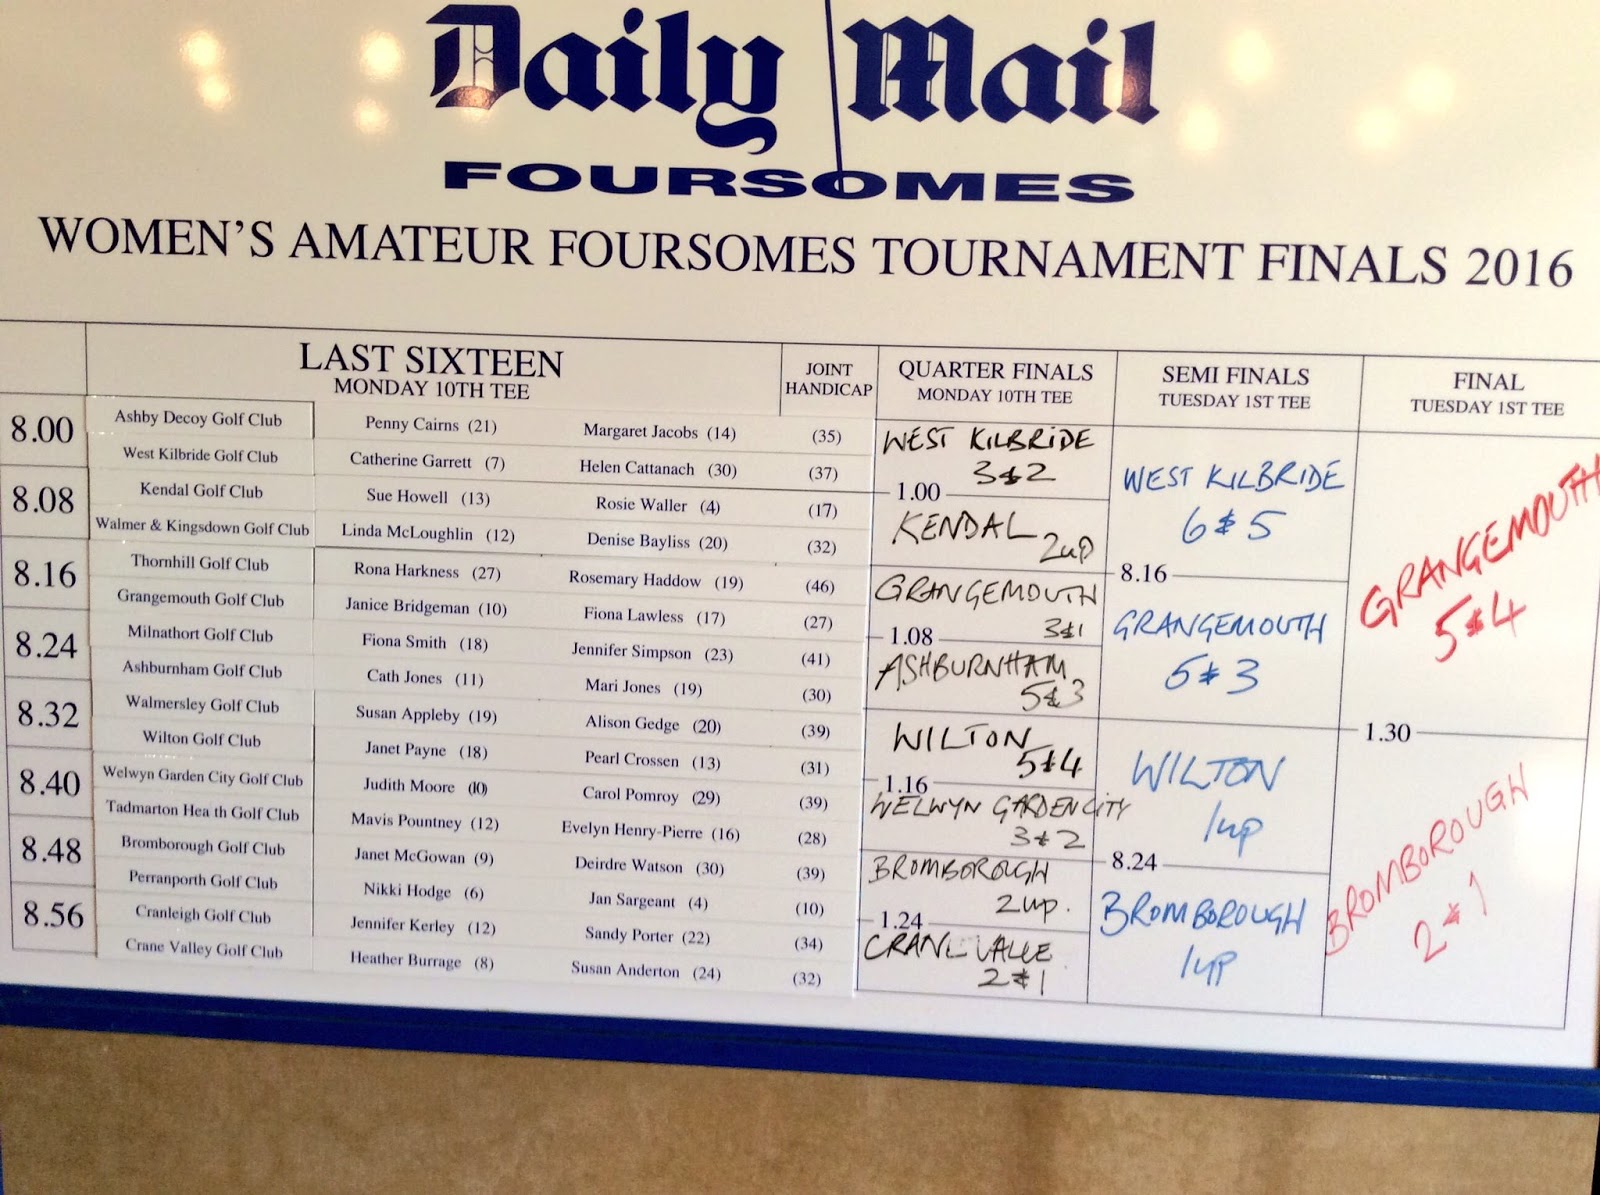 Daily Mail
FOURSOMES
WOMEN'S AMATEUR FOURSOMES TOURNAMENT FINALS 2016
LAST SIXTEEN
MONDAY 10TH TEE
JOINT HANDICAP
QUARTER FINALS
MONDAY 10TH TEE
SEMI FINALS
TUESDAY 1ST TEE
FINAL
TUESDAY 1ST TEE
8.00
Ashby Decoy Golf Club Penny Cairns (21) Margaret Jacobs (14) (35)
West Kilbride Golf Club Catherine Garrett (7) Helen Cattanach (30) (37)
8.08
Kendal Golf Club Sue Howell (13) Rosie Waller (4) (17)
Walmer & Kingsdown Golf Club Linda McLoughlin (12) Denise Bayliss (20) (32)
8.16
Thornhill Golf Club Rona Harkness (27) Rosemary Haddow (19) (46)
Grangemouth Golf Club Janice Bridgeman (10) Fiona Lawless (17) (27)
8.24
Milnathort Golf Club Fiona Smith (18) Jennifer Simpson (23) (41)
Ashburnham Golf Club Cath Jones (11) Mari Jones (19) (30)
8.32
Walmersley Golf Club Susan Appleby (19) Alison Gedge (20) (39)
Wilton Golf Club Janet Payne (18) Pearl Crossen (13) (31)
8.40
Welwyn Garden City Golf Club Judith Moore (10) Carol Pomroy (29) (39)
Tadmarton Hea th Golf Club Mavis Pountney (12) Evelyn Henry-Pierre (16) (28)
8.48
Bromborough Golf Club Janet McGowan (9) Deirdre Watson (30) (39)
Perranporth Golf Club Nikki Hodge (6) Jan Sargeant (4) (10)
8.56
Cranleigh Golf Club Jennifer Kerley (12) Sandy Porter (22) (34)
Crane Valley Golf Club Heather Burrage (8) Susan Anderton (24) (32)
WEST KILBRIDE
3&2
1.00
KENDAL
2up
GRANGEMOUTH
3&1
1.08
ASHBURNHAM
5&3
WILTON
5&4
1.16
WELWYN GARDEN CITY
3&2
BROMBOROUGH
2up.
1.24
2&1
WEST KILBRIDE
6&5
8.16
GRANGEMOUTH
5&3
WILTON
1up
8.24
BROMBOROUGH
1up
GRANGEMOUTH
5&4
1.30
BROMBOROUGH
2&1